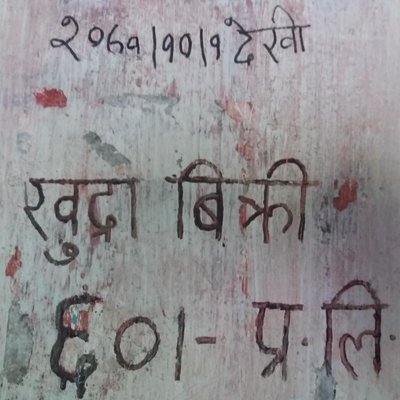 २०७१।१०।१ देखी
खुद्रा बिक्री
६०।- प्र.लि.